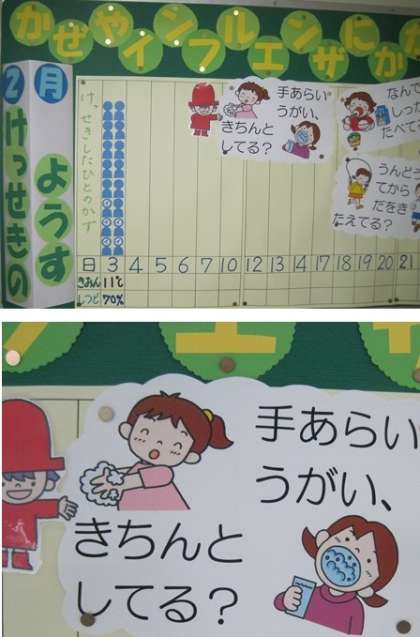 かぜやインフルエンザにか
2月
けっせきの
ようす
けっせきしたひとのかず
手あらい
うがい、
きちんと
してる?
なんで
しっ
たべて
うんどう
てから
だをき
たえてる?
日 3 4 5 6 7 10 11 12 13 14 17 18 19 20 21
きおん 11℃
しつど 70%
手あらい
うがい、
きちんと
してる?